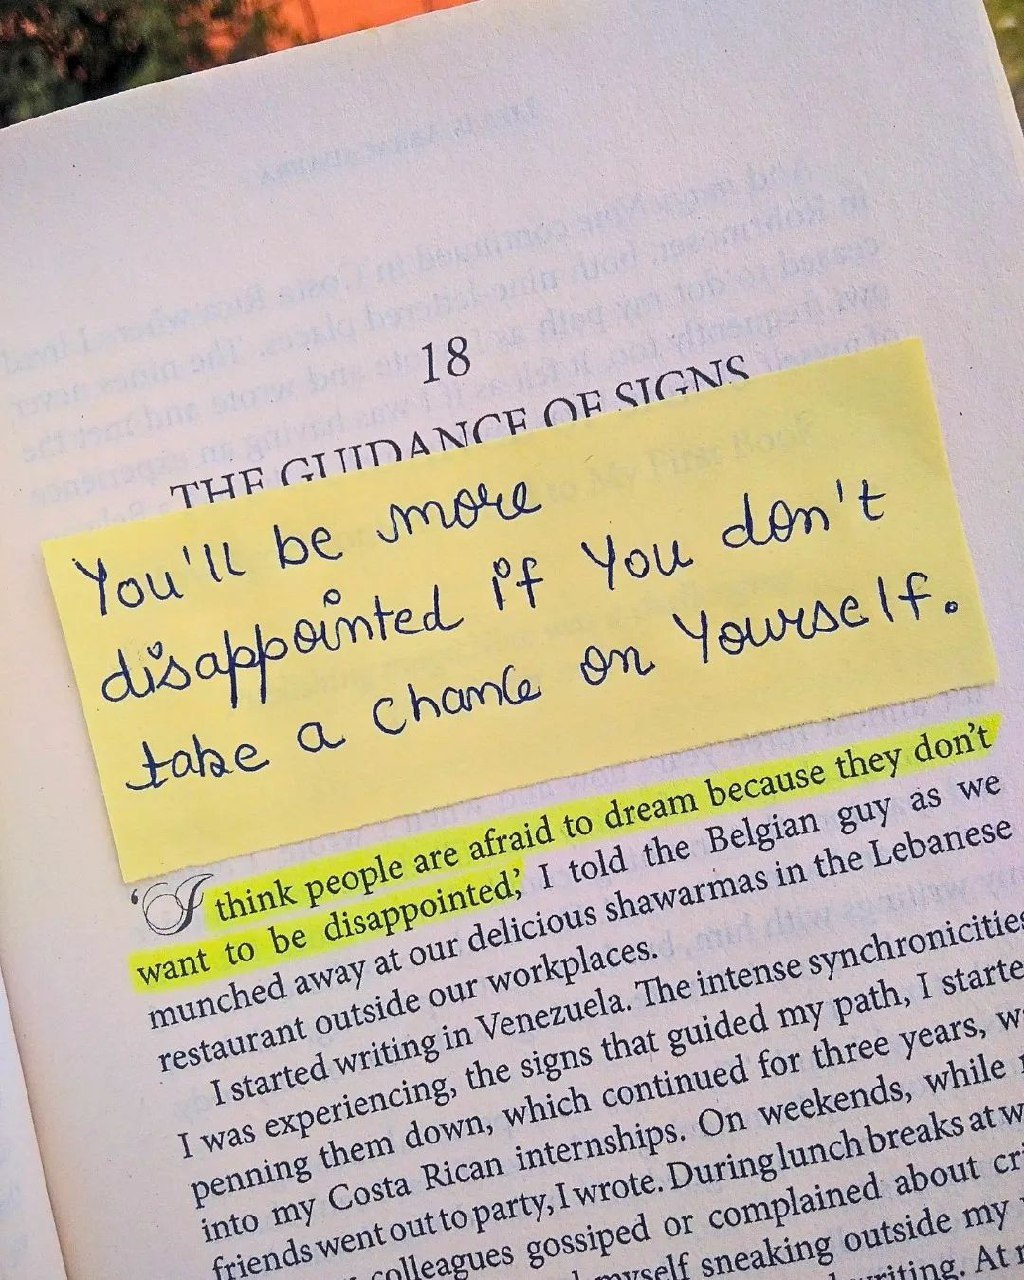 18
THE GUIDANCE OF SIGNS
You'll be more
disappointed if you don't
take a chance on yourself.
‘I think people are afraid to dream because they don’t
want to be disappointed,’ I told the Belgian guy as we
munched away at our delicious shawarmas in the Lebanese
restaurant outside our workplaces.
I started writing in Venezuela. The intense synchronicities
I was experiencing, the signs that guided my path, I starte
penning them down, which continued for three years, w
into my Costa Rican internships. On weekends, while
friends went out to party, I wrote. During lunch breaks at w
colleagues gossiped or complained about cri
myself sneaking outside my
writing. At